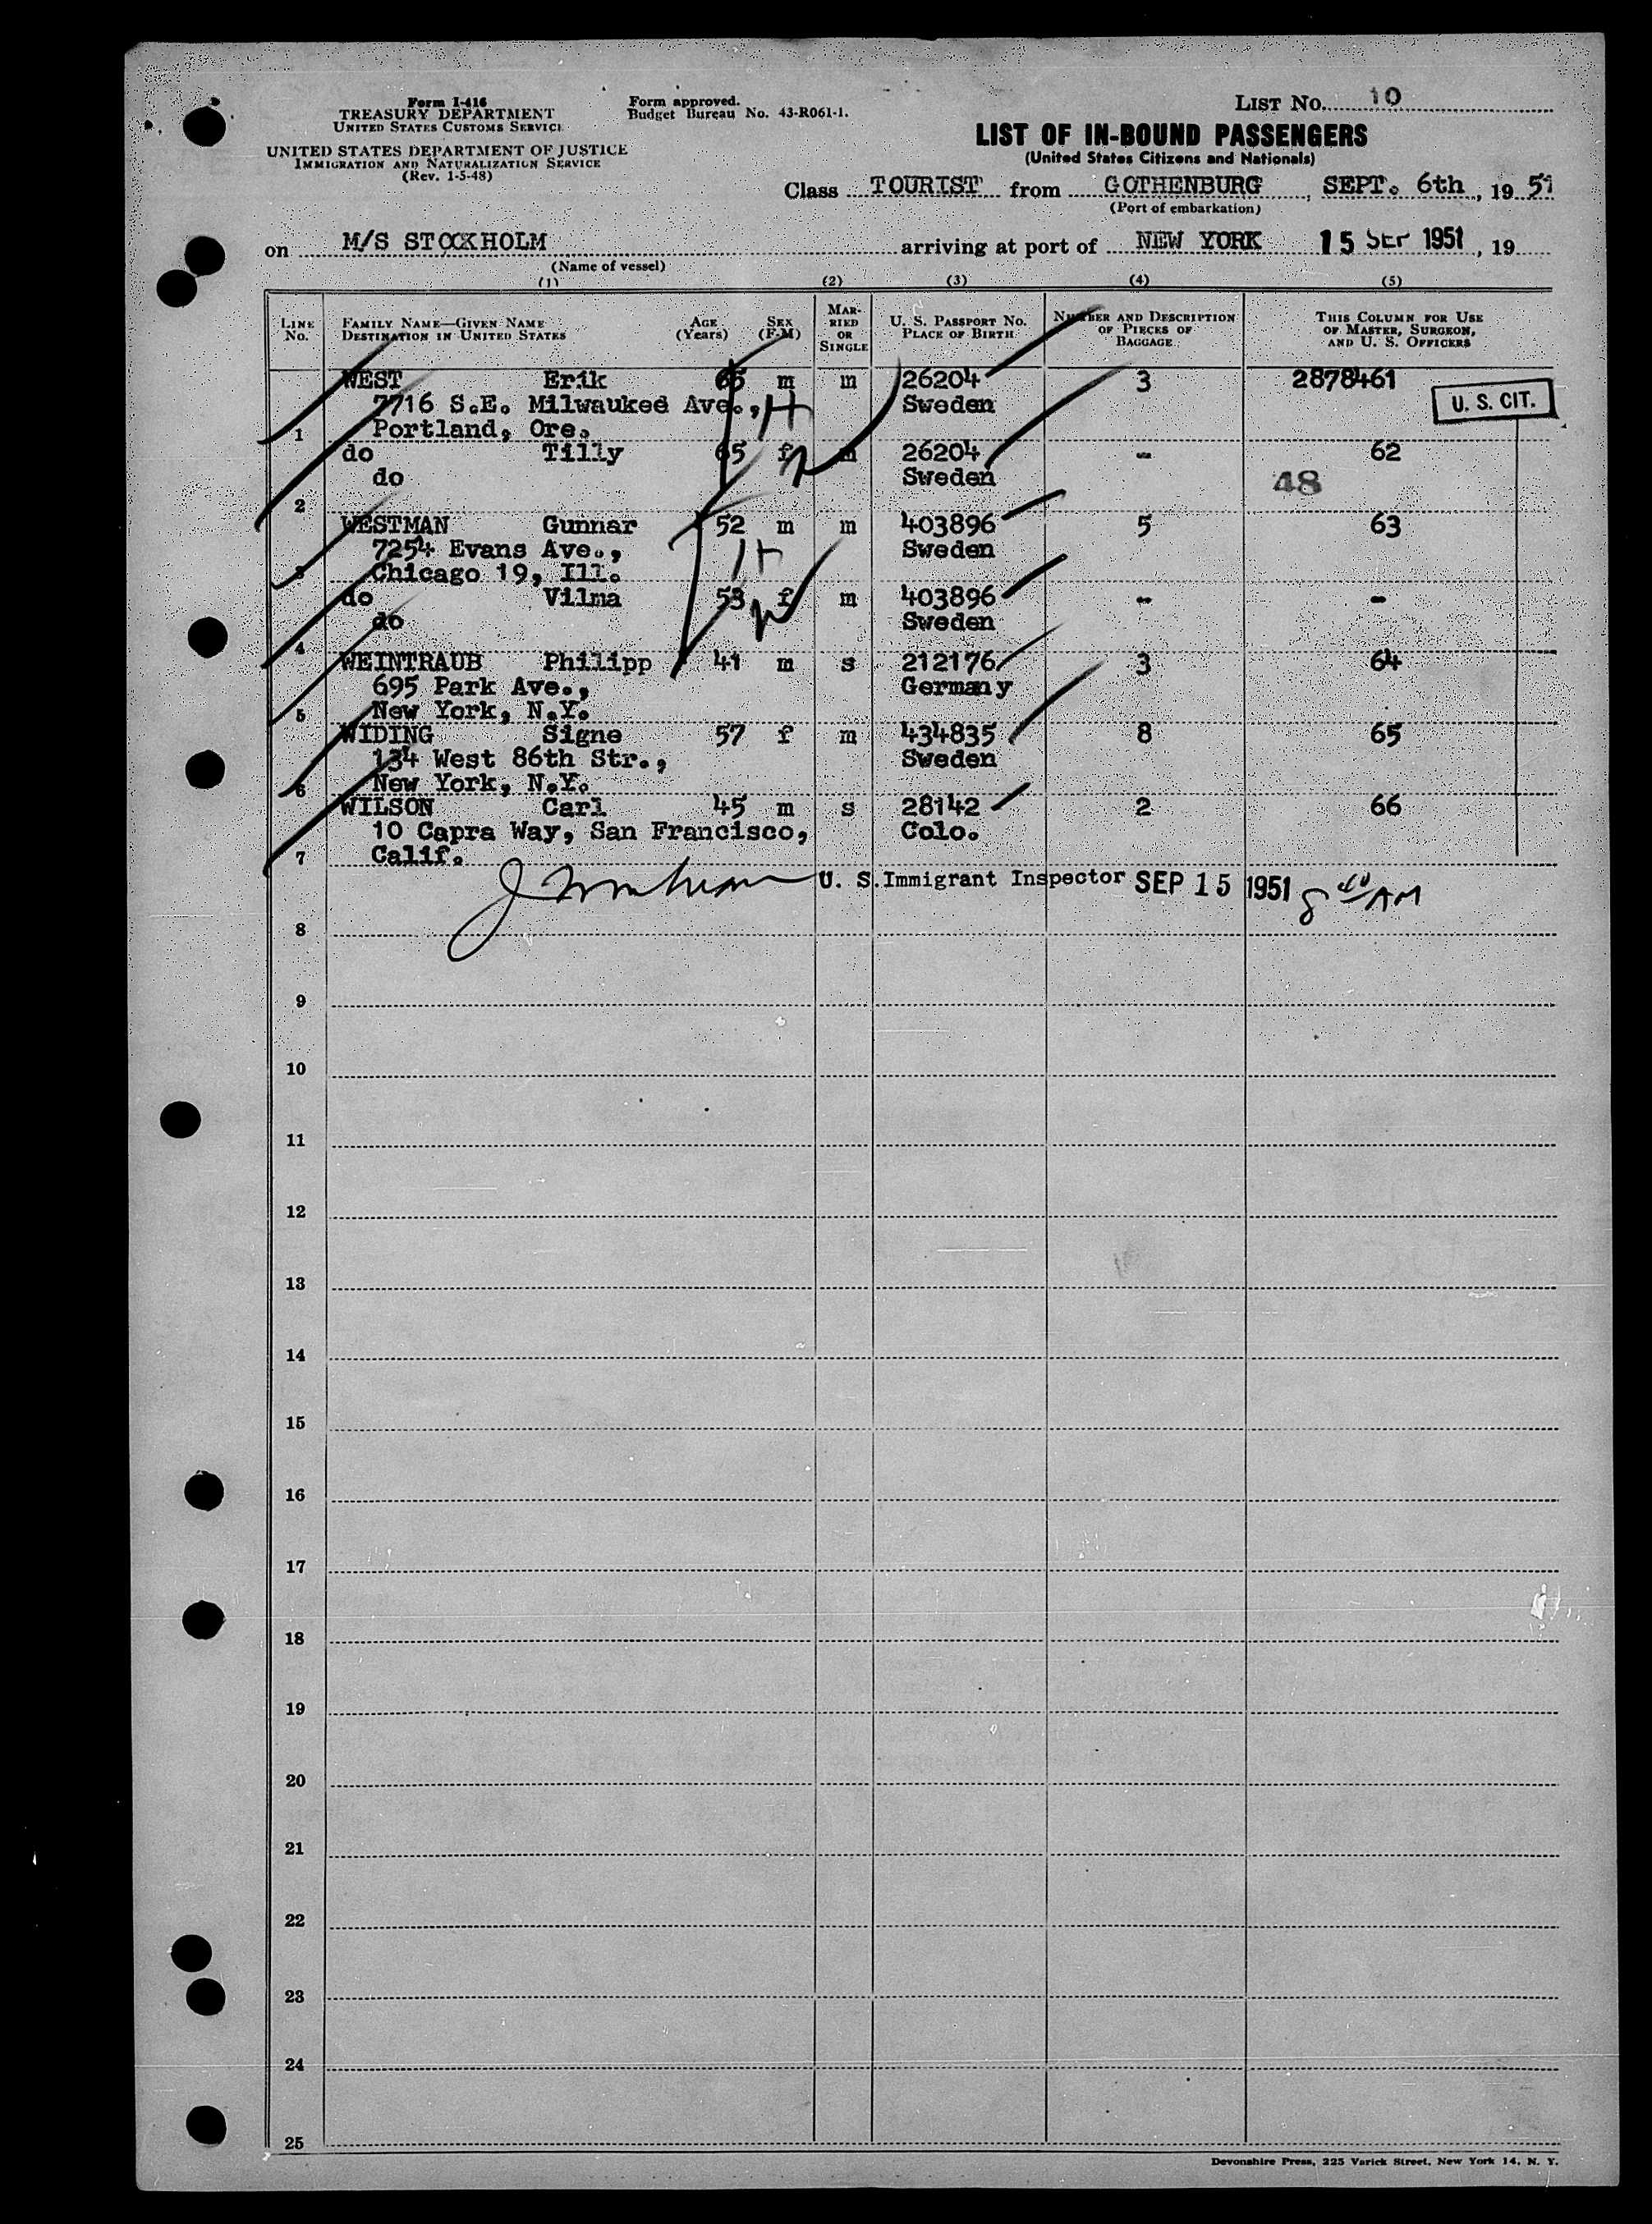 Form I-416
TREASURY DEPARTMENT
UNITED STATES CUSTOMS SERVICE
UNITED STATES DEPARTMENT OF JUSTICE
IMMIGRATION AND NATURALIZATION SERVICE
(Rev. 1-5-48)
Form approved.
Budget Bureau No. 43-R061-1.
LIST No. 10
LIST OF IN-BOUND PASSENGERS
(United States Citizens and Nationals)
Class TOURIST from GOTHENBURG, SEPT. 6th, 1951
(Port of embarkation)
on M/S STOCKHOLM arriving at port of NEW YORK 15 SEP 1951, 19
(Name of vessel)
(1) (2) (3) (4) (5)
LINE No. FAMILY NAME—GIVEN NAME DESTINATION IN UNITED STATES AGE (Years) SEX (F-M) MARRIED OR SINGLE U. S. PASSPORT No. PLACE OF BIRTH NUMBER AND DESCRIPTION OF PIECES OF BAGGAGE THIS COLUMN FOR USE OF MASTER, SURGEON, AND U. S. OFFICERS
WEST Erik 65 m m 26204 3 2878461
7716 S.E. Milwaukee Ave., H Sweden U. S. CIT.
1 Portland, Ore.
do Tilly 65 f m 26204 - 62
do W Sweden 48
2
WESTMAN Gunnar 52 m m 403896 5 63
7254 Evans Ave., H Sweden
3 Chicago 19, Ill.
do Vilma 53 f m 403896 - -
do W Sweden
4
WEINTRAUB Philipp 41 m s 212176 3 64
695 Park Ave., Germany
5 New York, N.Y.
WIDING Signe 57 f m 434835 8 65
134 West 86th Str., Sweden
6 New York, N.Y.
WILSON Carl 45 m s 28142 2 66
10 Capra Way, San Francisco, Colo.
7 Calif.
U. S. Immigrant Inspector SEP 15 1951 8 40 AM
8
9
10
11
12
13
14
15
16
17
18
19
20
21
22
23
24
25
Devonshire Press, 225 Varick Street, New York 14, N. Y.